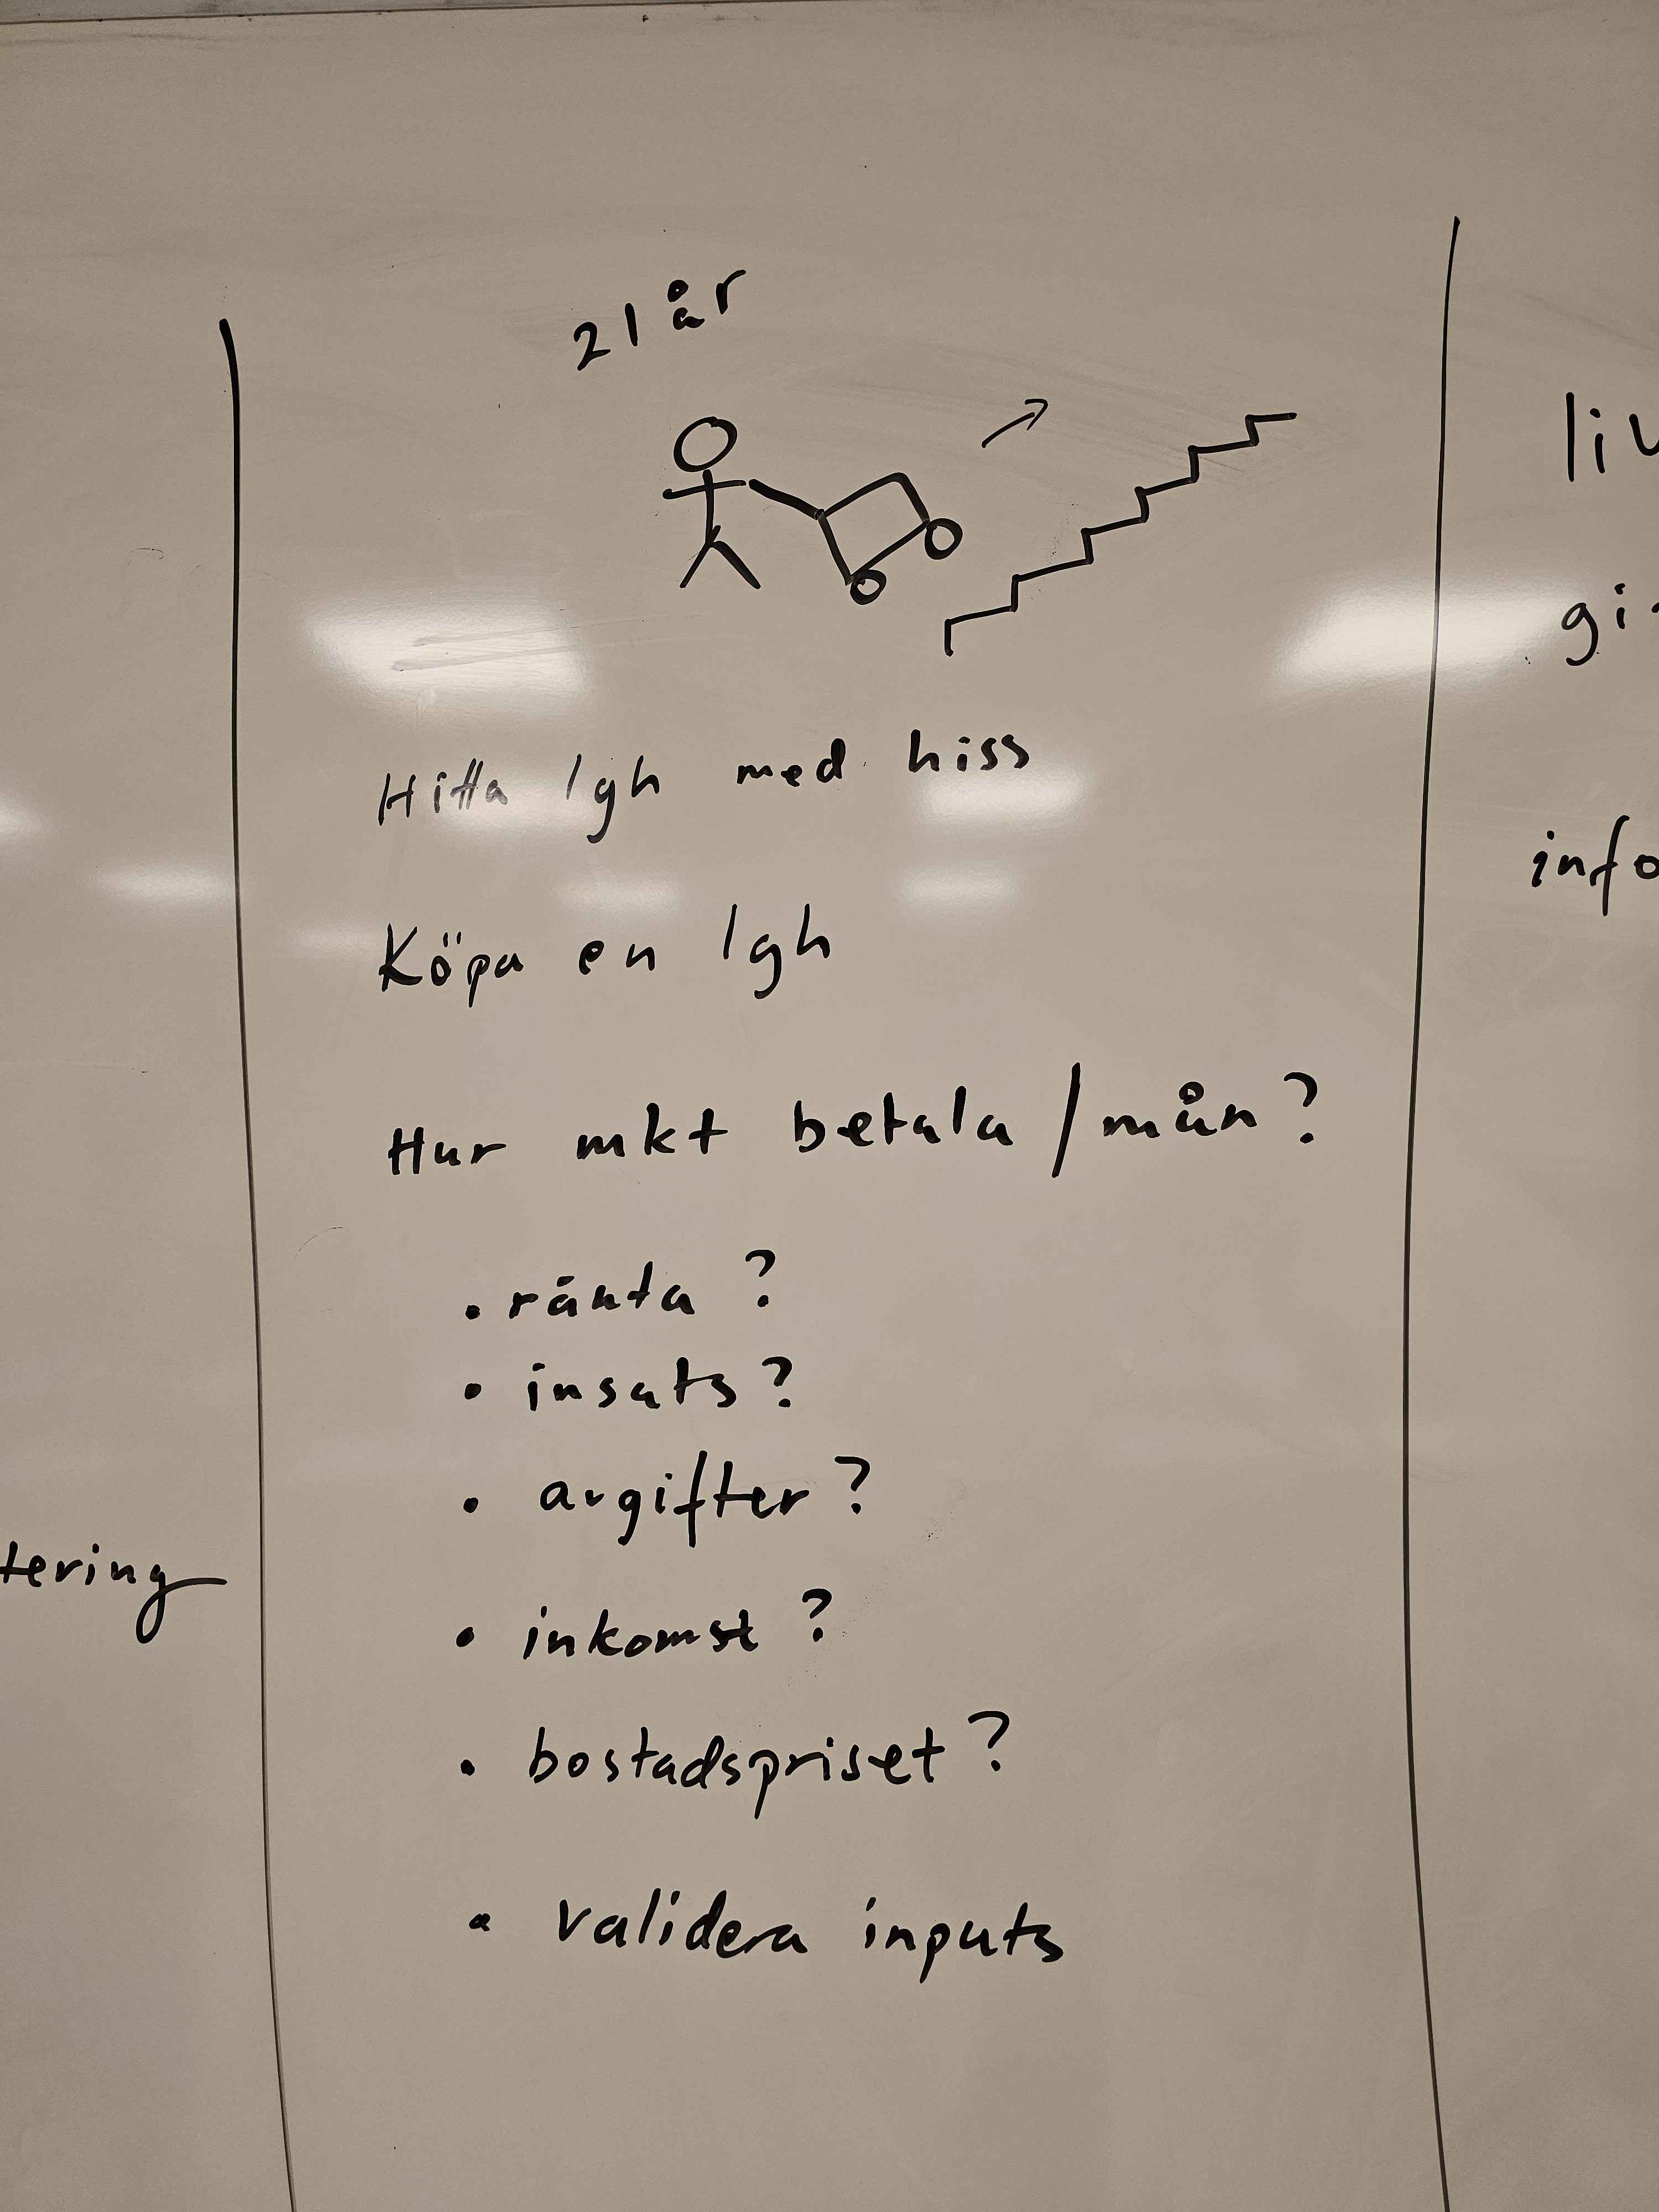 21 år
Hitta lgh med hiss
Köpa en lgh
Hur mkt betala / mån?
• ränta ?
• insats?
• avgifter?
tering
• inkomst ?
• bostadspriset ?
• validera inputs
info